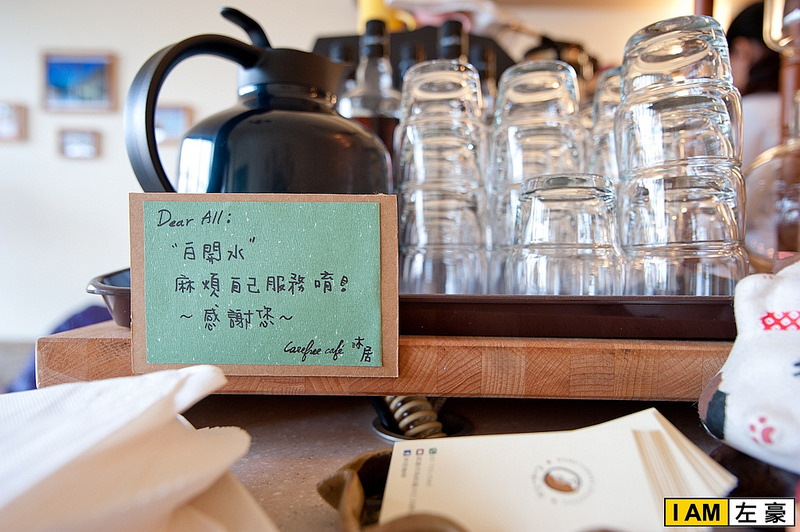 Dear All:
"白開水"
麻煩自己服務唷!
~感謝您~
Carefree café 咪居
I AM 左豪